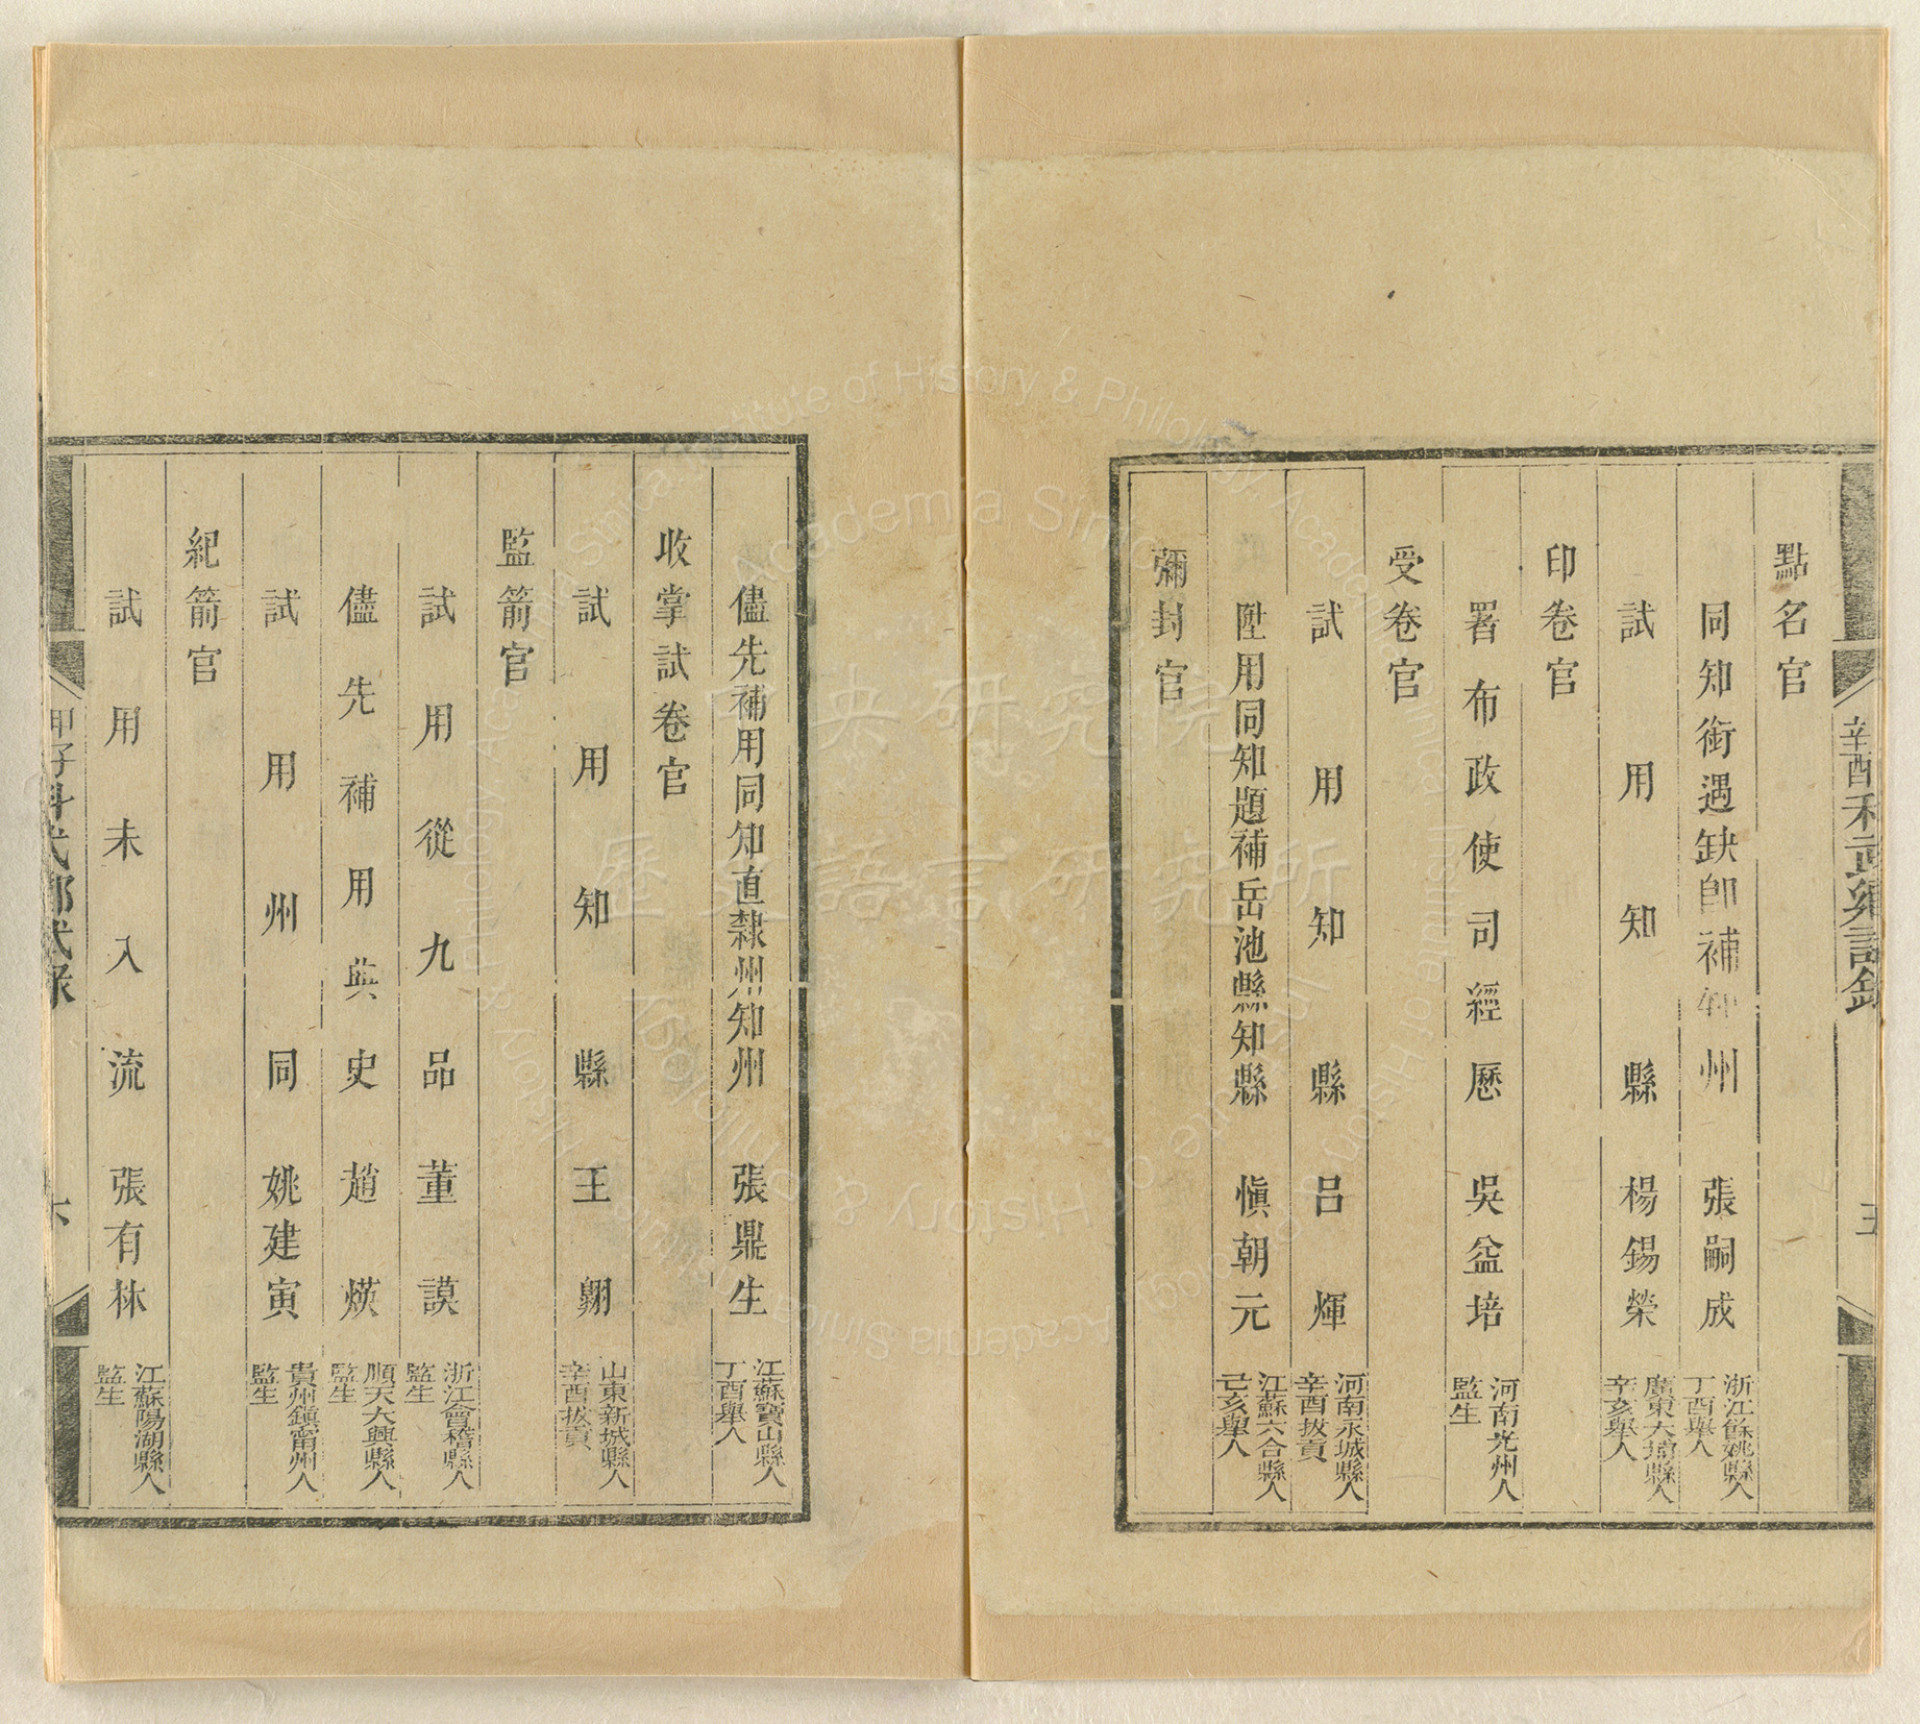 辛酉科武鄉試錄
點名官
同知銜遇缺卽補知州 張嗣成 浙江餘姚縣人 丁酉舉人
試用知縣 楊錫榮 廣東大埔縣人 辛亥舉人
印卷官
署布政使司經歷 吳益培 河南光州人 監生
受卷官
試用知縣 呂煇 河南永城縣人 辛酉拔貢
陞用同知題補岳池縣知縣 愼朝元 江蘇六合縣人 己亥舉人
彌封官
儘先補用同知直隸州知州 張鼎生 江蘇寶山縣人 丁酉舉人
收掌試卷官
試用知縣 王翺 山東新城縣人 辛酉拔貢
監箭官
試用從九品 董謨 浙江會稽縣人 監生
儘先補用典史 趙煐 順天大興縣人 監生
試用州同 姚建寅 貴州鎮甯州人 監生
紀箭官
試用未入流 張有林 江蘇陽湖縣人 監生
甲子科武鄉試錄
六
Institute of History & Philology, Academia Sinica
中央研究院
歷史語言研究所